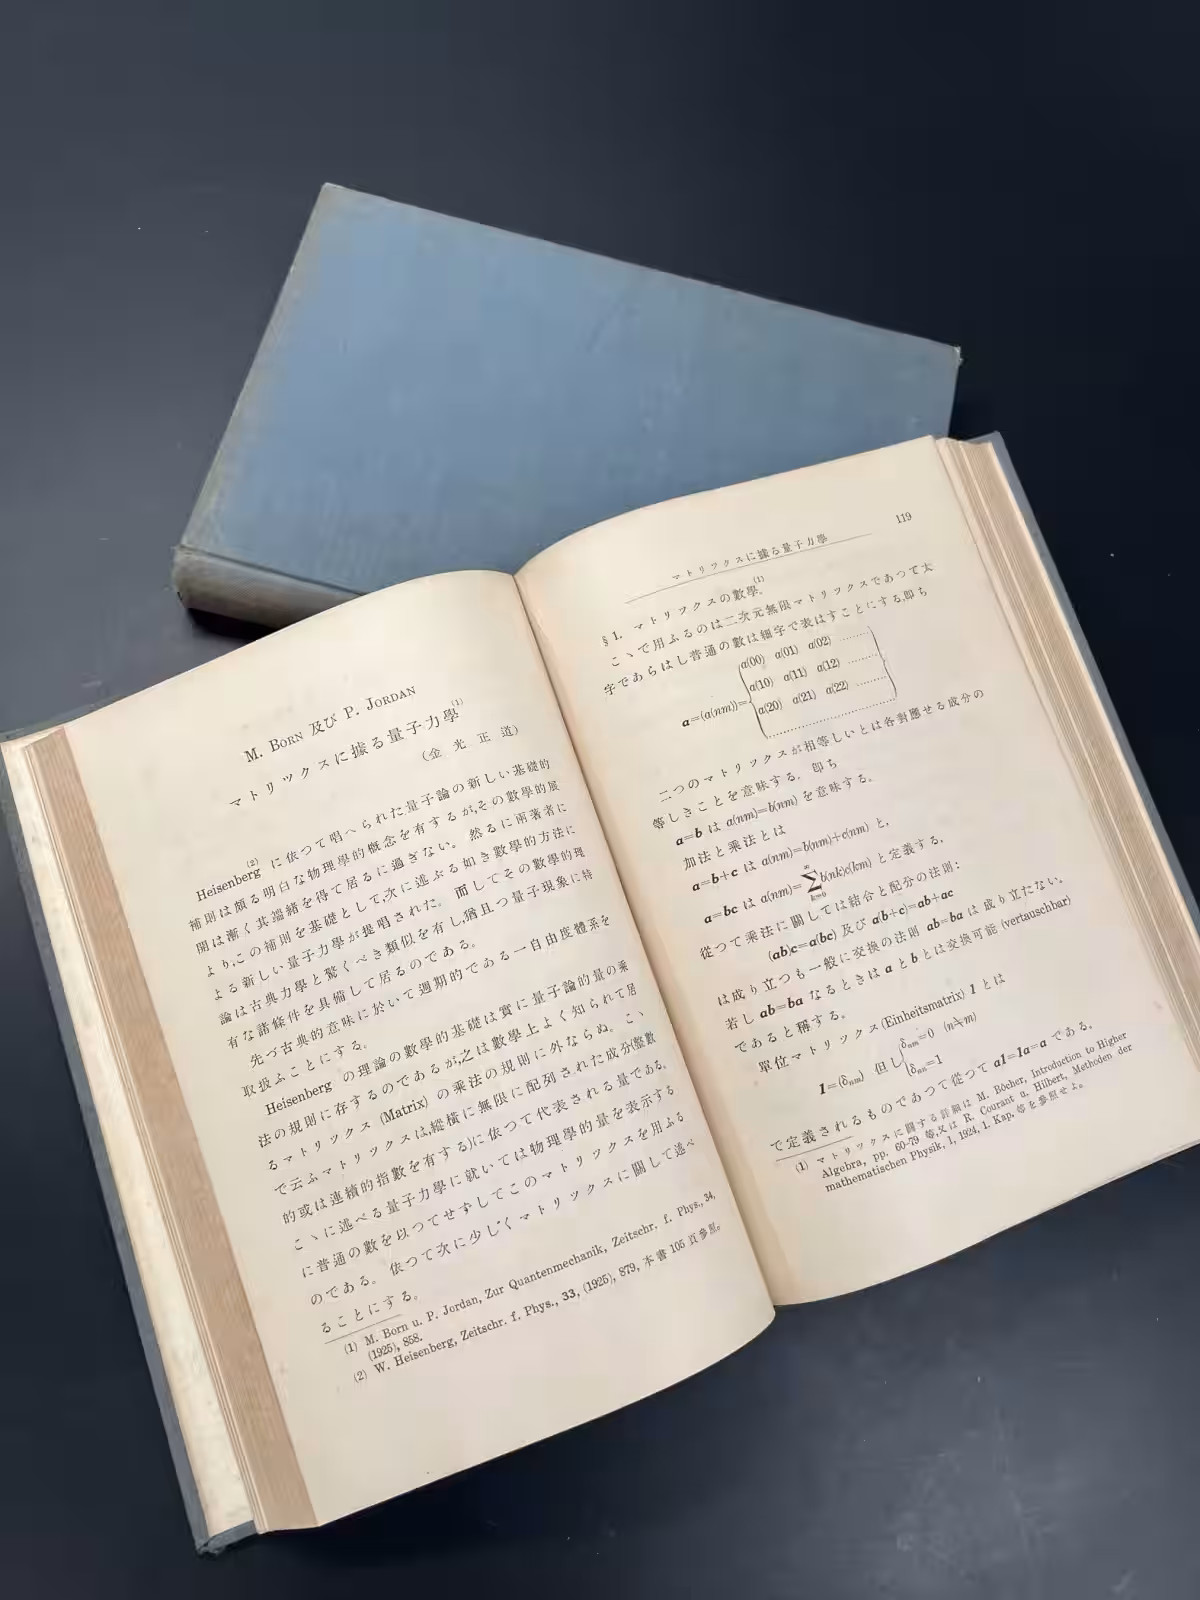 M. BORN 及び P. JORDAN
マトリックスに據る量子力學(1)
(金 光 正 道)
Heisenberg(2) に依つて唱へられた量子論の新しい基礎的
補則は頗る明白な物理學的概念を有するが,その數學的展
開は漸く其端緒を得て居るに過ぎない。然るに兩著者に
より,この補則を基礎として,次に述ぶる如き數學的方法に
よる新しい量子力學が提唱された。而してその數學的理
論は古典力學と驚くべき類似を有し,猶且つ量子現象に特
有な諸條件を具備して居るのである。
先づ古典的意味に於いて週期的である一自由度體系を
取扱ふことにする。
Heisenberg の理論の數學的基礎は實に量子論的量の乘
法の規則に存するのであるが,之は數學上よく知られて居
るマトリックス (Matrix) の乘法の規則に外ならぬ。こゝ
で云ふマトリックスは,縱橫に無限に配列された成分(整數
的或は連續的指數を有する)に依つて代表される量である,
こゝに述べる量子力學に就いては物理學的量を表示する
に普通の數を以つてせずしてこのマトリックスを用ふる
のである。依つて次に少しくマトリックスに關して述べ
ることにする。
(1) M. Born u. P. Jordan, Zur Quantenmechanik, Zeitschr. f. Phys., 34,
(1925), 858.
(2) W. Heisenberg, Zeitschr. f. Phys., 33, (1925), 879, 本書 105 頁參照。
マトリックスに據る量子力學
119
§1. マトリックスの數學.(1)
こゝで用ふるのは二次元無限マトリックスであつて太
字であらはし普通の數は細字で表はすことにする,即ち
a(00) a(01) a(02) ………
a=(a(nm))= a(10) a(11) a(12) ………
a(20) a(21) a(22) ………
二つのマトリックスが相等しいとは各對應せる成分の
等しきことを意味する, 即ち
a=b は a(nm)=b(nm) を意味する。
加法と乘法とは
a=b+c は a(nm)=b(nm)+c(nm) と,
a=bc は a(nm)=∑_{k=0}^{∞}b(nk)c(km) と定義する,
從つて乘法に關しては結合と配分の法則:
(ab)c=a(bc) 及び a(b+c)=ab+ac
は成り立つも一般に交換の法則 ab=ba は成り立たない,
若し ab=ba なるときは a と b とは交換可能 (vertauschbar)
であると稱する。
單位マトリックス (Einheitsmatrix) 1 とは
1=(δnm) 但し {δnm=0 (n≠m)
δnn=1
で定義されるものであつて從つて a1=1a=a である,
(1) マトリックスに關する詳細は M. Bôcher, Introduction to Higher
Algebra, pp. 60-79 等,又は R. Courant u. Hilbert, Methoden der
mathematischen Physik, 1, 1924, 1. Kap. 等を參照せよ。